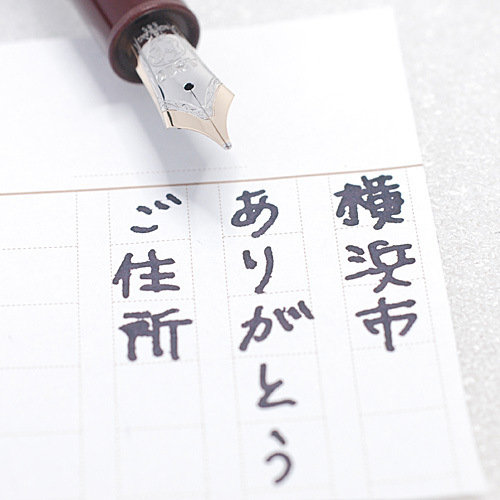 横浜市
ありがとう
ご住所